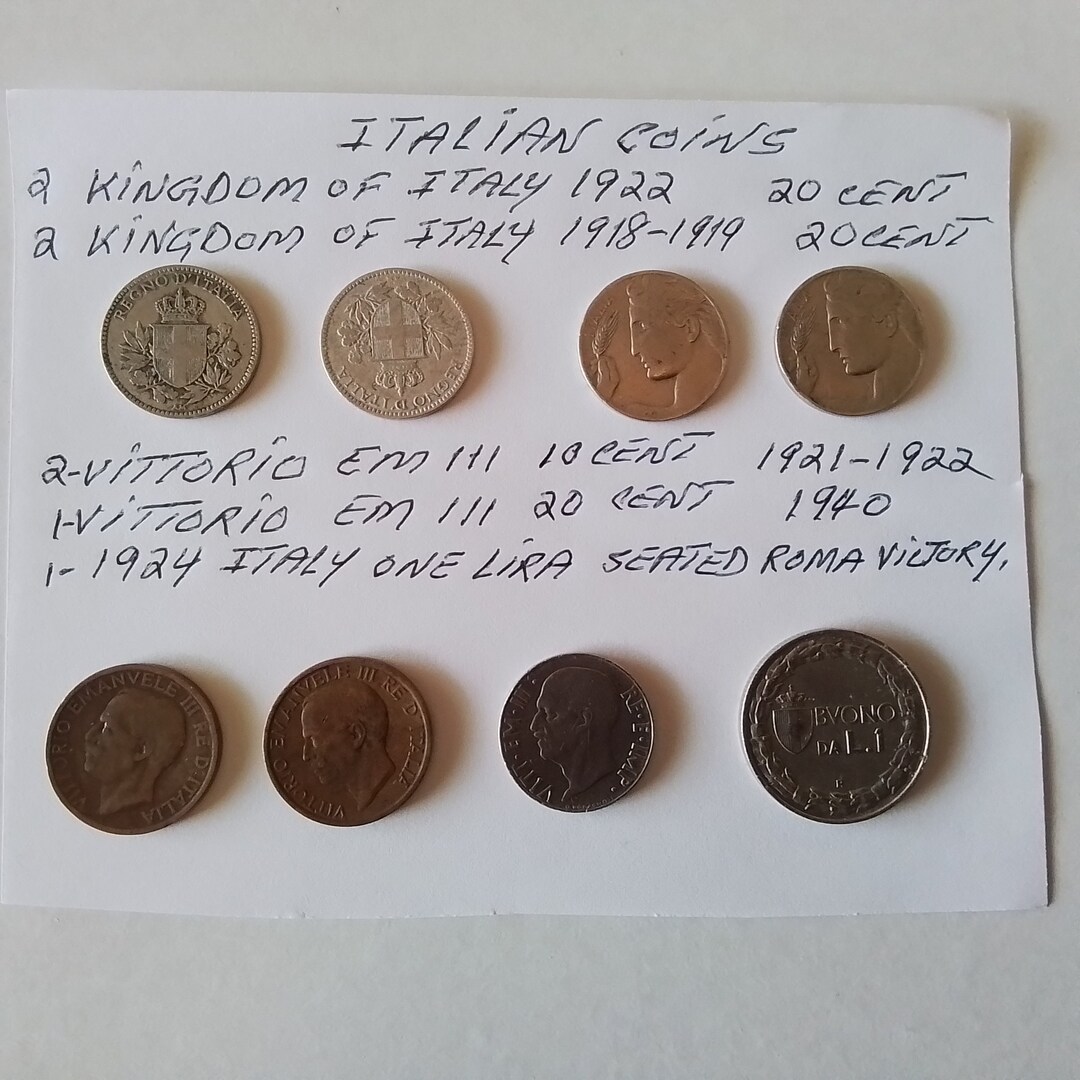 ITALIAN COINS
2 KINGDOM OF ITALY 1922 20 CENT
2 KINGDOM OF ITALY 1918-1919 20 CENT
REGNO D'ITALIA
REGNO D'ITALIA
2-VITTORIO EM III 10 CENT 1921-1922
1-VITTORIO EM III 20 CENT 1940
1- 1924 ITALY ONE LIRA SEATED ROMA VICTORY.
VITTORIO EMANVELE III RE D'ITALIA
VITTORIO EMANVELE III RE D'ITALIA
VITT·EM·III· RE·E·IMP·
BVONO
DA L.1
R